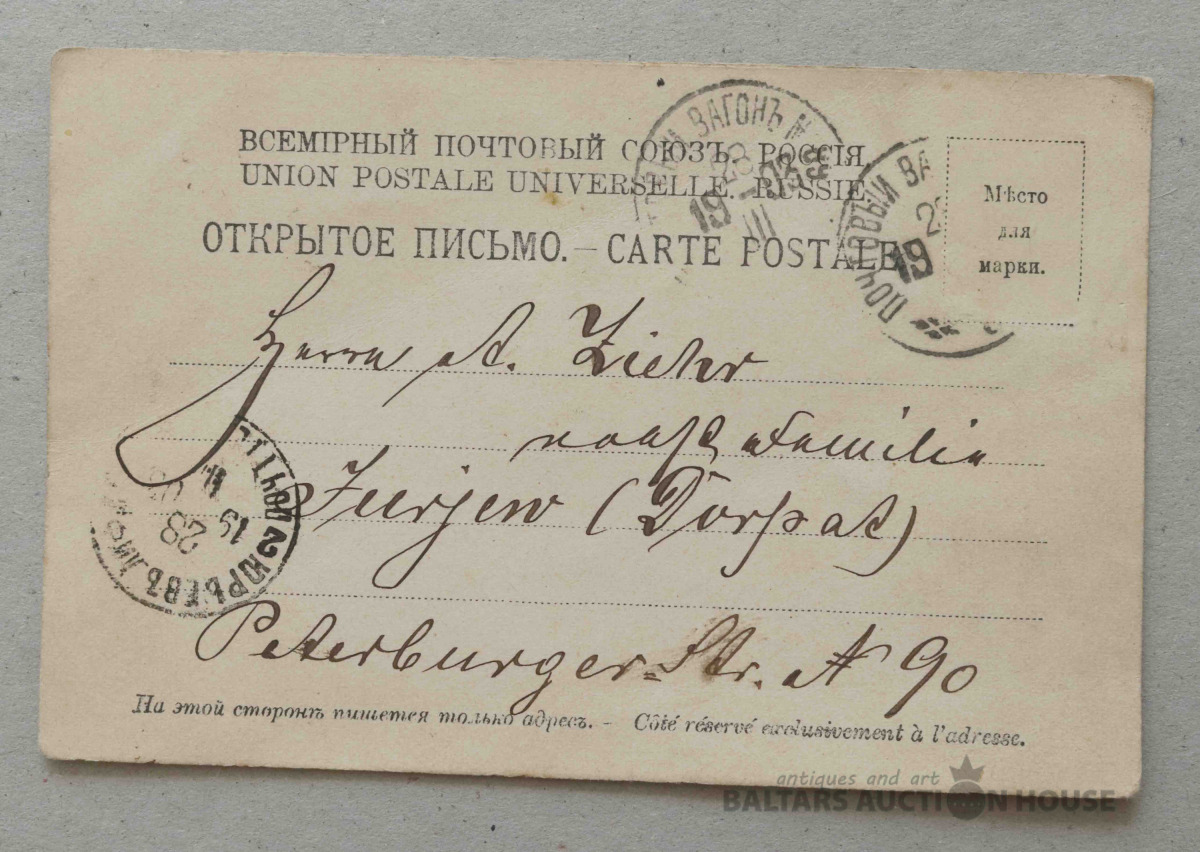 ВСЕМІРНЫЙ ПОЧТОВЫЙ СОЮЗЪ. РОССІЯ.
UNION POSTALE UNIVERSELLE. RUSSIE.
ОТКРЫТОЕ ПИСЬМО. — CARTE POSTALE
ВАГОНЪ №
28
19 03
III
ПОЧТОВЫЙ ВА
2
19
Мѣсто
для
марки.
Herrn A. Ziehr
Familie
Jurjew (Dorpat)
ЮРЬЕВЪ ЛИФ
28
19
Peterburger-Str. № 90
На этой сторонѣ пишется только адресъ. — Côté réservé exclusivement à l'adresse.
antiques and art
BALTARS AUCTION HOUSE